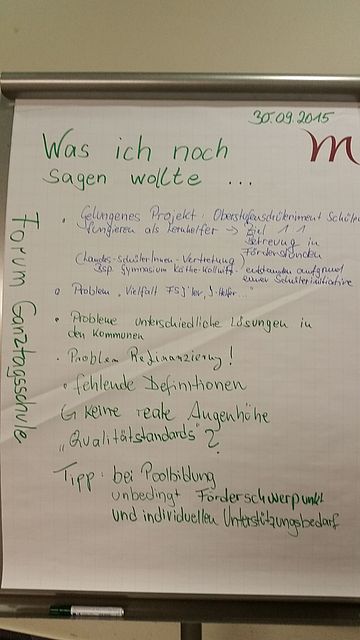 30.09.2015
m
Was ich noch
sagen wollte ...
Forum Ganztagsschule
• Gelungenes Projekt: Schüler
fungieren als Lernhelfer → Ziel 1:1
Betreuung in
Förderstunden
Schüler/innen-Vertretung
Bsp. Gymnasium Käthe-Kollwitz - entstanden aufgrund
einer Schülerinitiative
o Problem "Vielfalt FSJ'ler, J-Helfer..."
• Probleme unterschiedliche Lösungen in
den Kommunen
• Problem Refinanzierung!
• fehlende Definitionen
G keine reale Augenhöhe
"Qualitätstandards"?
Tipp: bei Poolbildung
unbedingt Förderschwerpunkt
und individuellen Unterstützungsbedarf